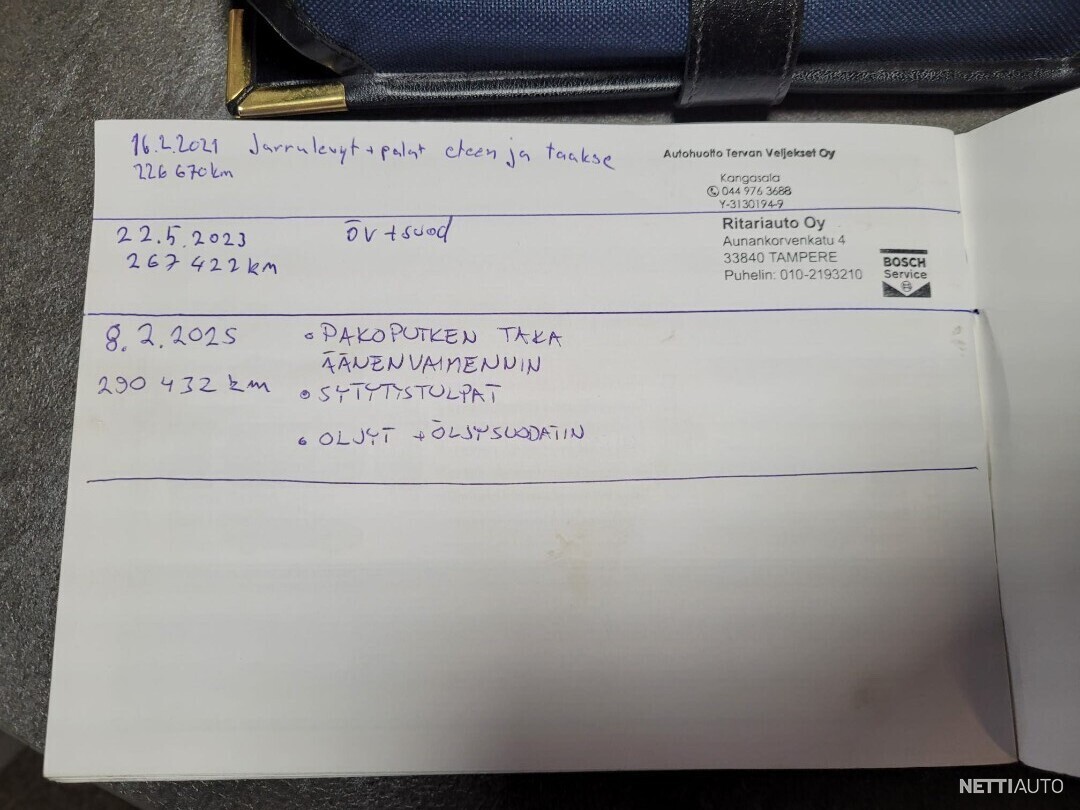 16.2.2021 Jarrulevyt + palat eteen ja taakse
226 670km
Autohuolto Tervan Veljekset Oy
Kangasala
044 976 3688
Y-3130194-9
22.5.2023 ÖV + suod
267 422km
Ritariauto Oy
Aunankorvenkatu 4
33840 TAMPERE
Puhelin: 010-2193210
BOSCH
Service
8.2.2025 • PAKOPUTKEN TAKA
ÄÄNENVAIMENNIN
290 432 km • SYTYTYSTULPAT
• ÖLJYT + ÖLJYSUODATIN
NETTIAUTO